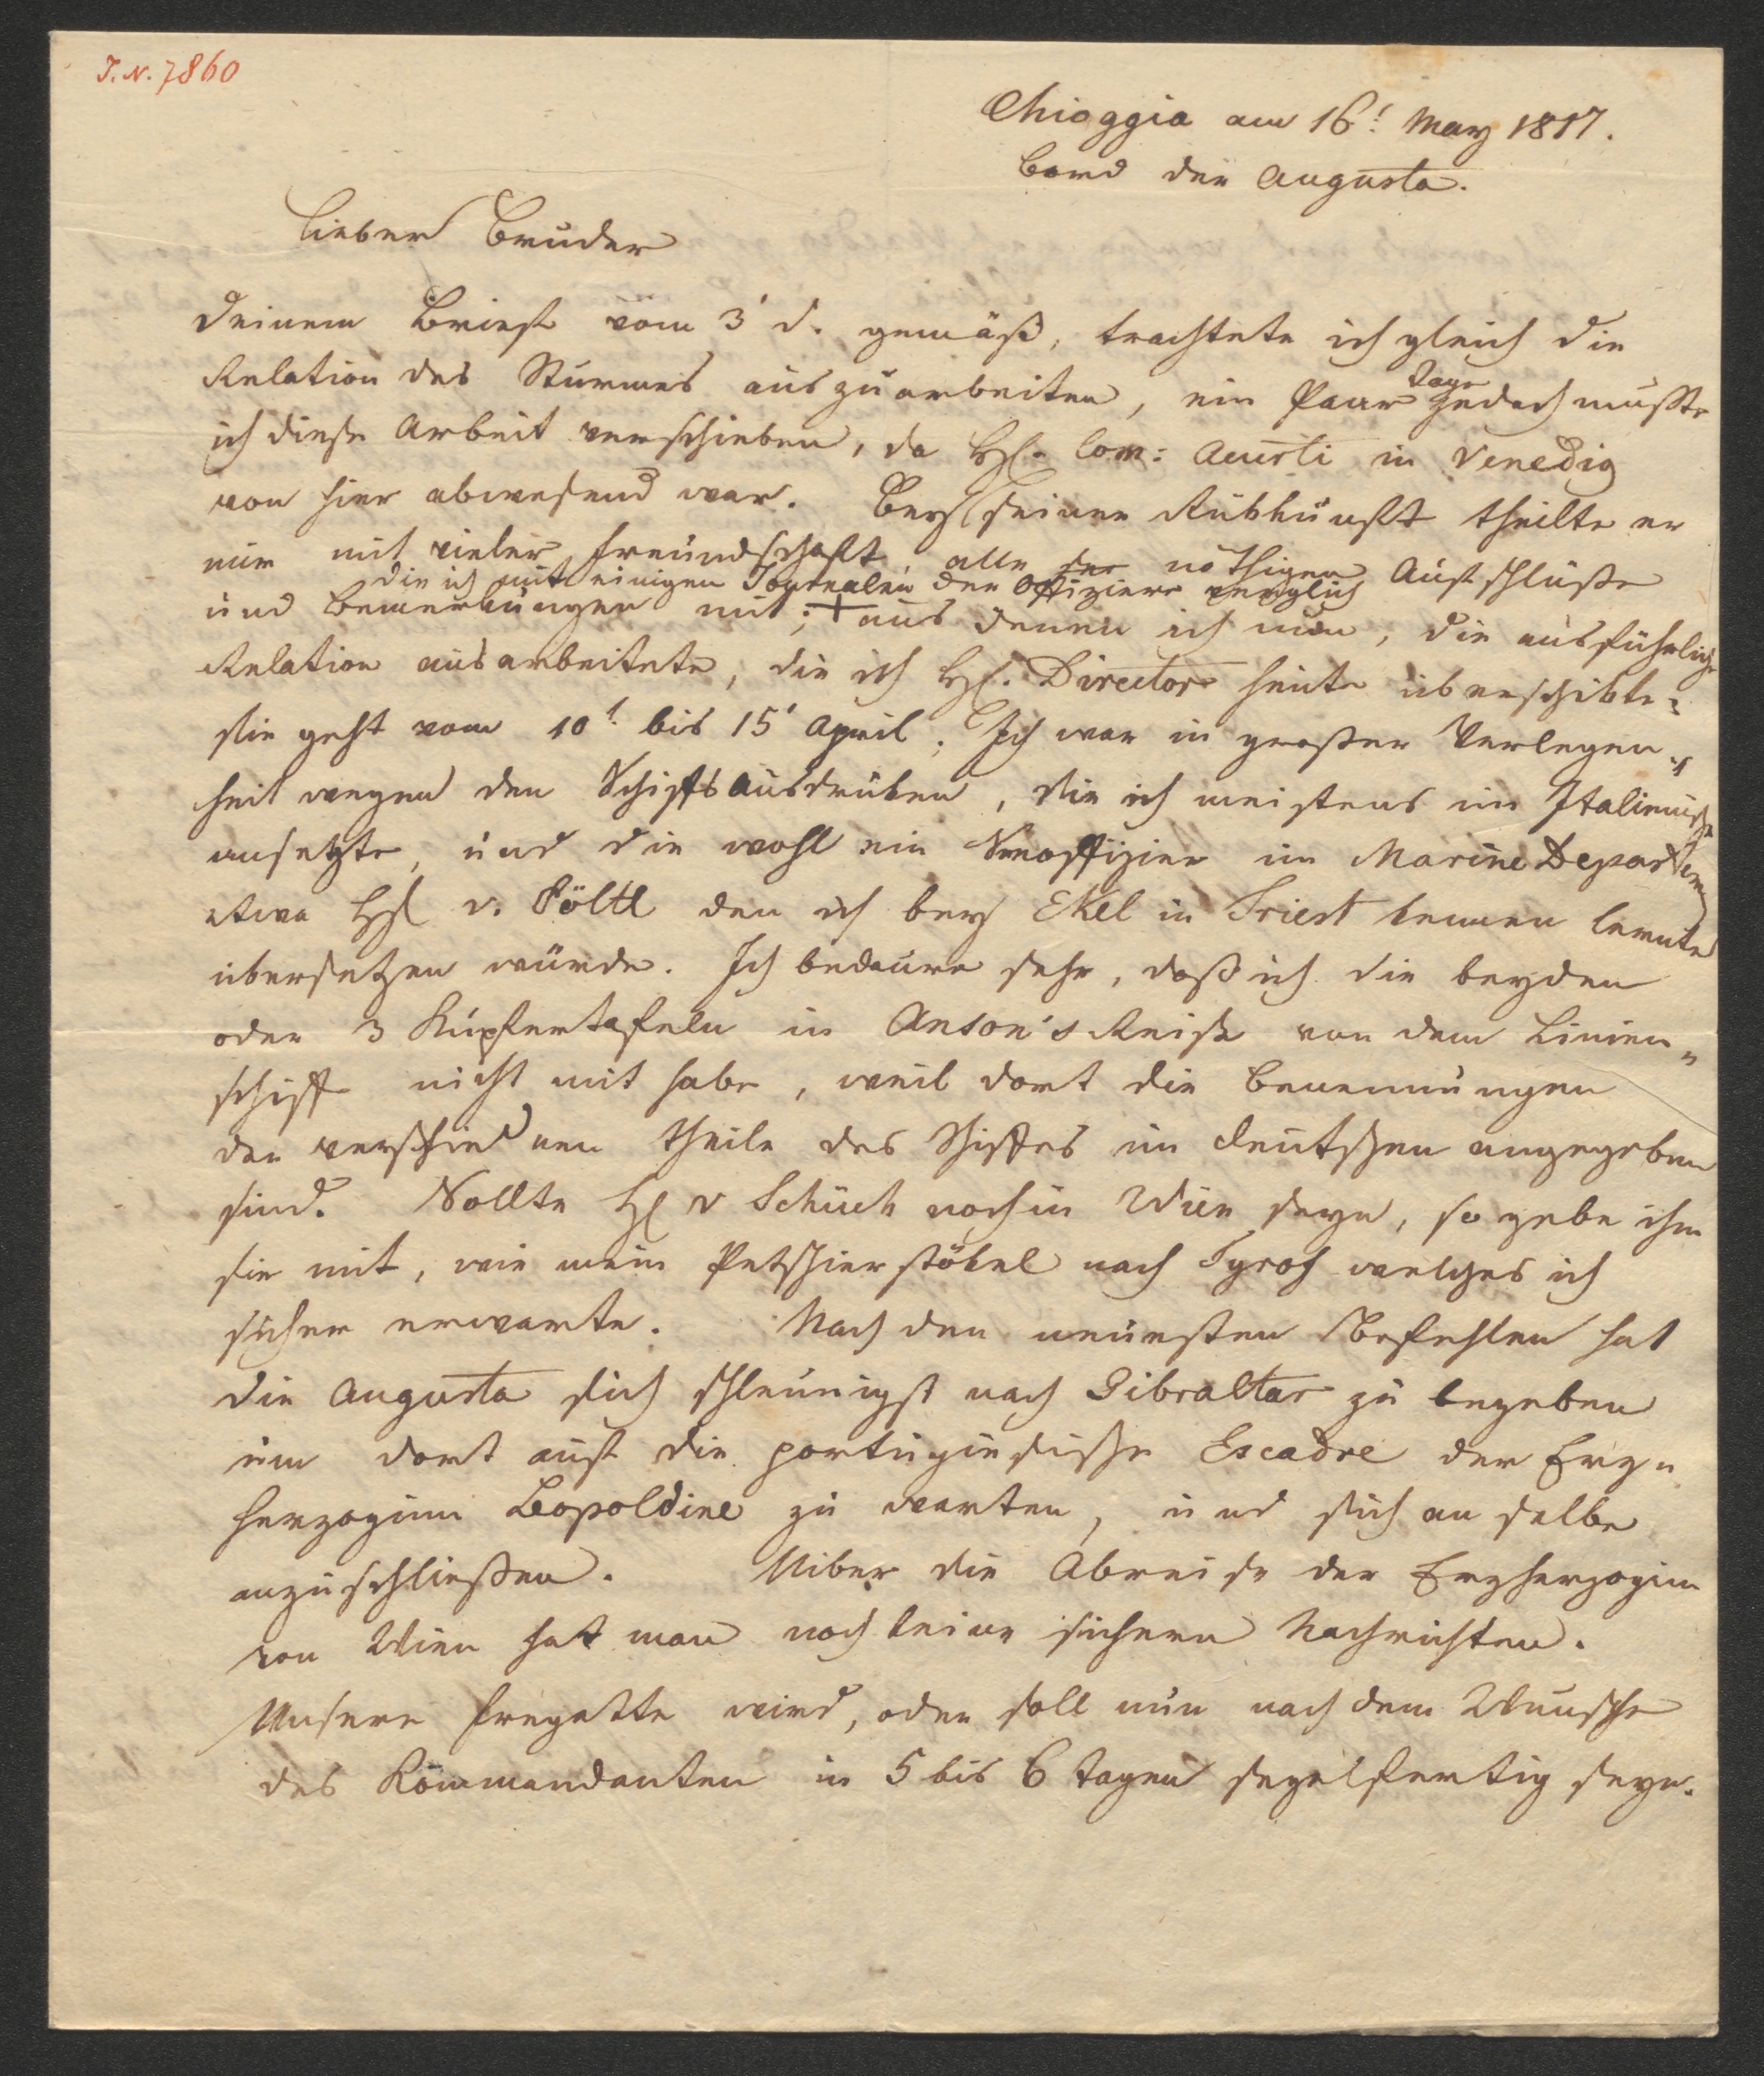 I.N. 7860
Chioggia am 16t May 1817.
Bord der Augusta.
Lieber Bruder
Deinem Briefe vom 3t d. gemäß, trachtete ich gleich die
Relation des Sturmes auszuarbeiten, ein Paar Tage jedoch mußte
ich diese Arbeit verschieben, da H. Com: Accurti in Venedig
von hier abwesend war. Bey seiner Rükkunft theilte er
mir mit vieler Freundschaft, alle nöthigen Aufschlüße
die ich mit einigen Journalen der Offiziere verglich
und Bemerkungen mit; + aus denen ich nun, die ausführliche
Relation ausarbeitete, die ich H. Director heute überschikte:
sie geht vom 10t bis 15t April. Ich war in großer Verlegen„
heit wegen den Schiffsausdrüken, die ich meistens im Italienischen
ansetzte, und die wohl ein Seeoffizier im Marine Departem
etwa H v. Pöltl den ich bey Ekel in Triest kennen lernte
übersetzen würde. Ich bedaure sehr, daß ich die beyden
oder 3 Kupfertafeln in Anson's Reise von dem Linien„
schiff nicht mit habe, weil dort die Benennungen
der verschiednen Theile des Schiffes im deutschen angegeben
sind. Sollte H v Schüch noch in Wien seyn, so gebe ihm
sie mit, wie mein Petschierstökel nach welches ich
sicher erwarte. Nach den neuesten Befehlen hat
die Augusta sich schleunigst nach Gibraltar zu begeben
um dort auf die portugiesische Escadre der Erz„
herzoginn Leopoldine zu warten, und sich an selbe
anzuschließen. Uiber die Abreise der Erzherzoginn
von Wien hat man noch keine sichern Nachrichten.
Unsere Fregatte wird, oder soll nun nach dem Wunsche
des Kommandanten in 5 bis 6 Tagen segelfertig seyn.